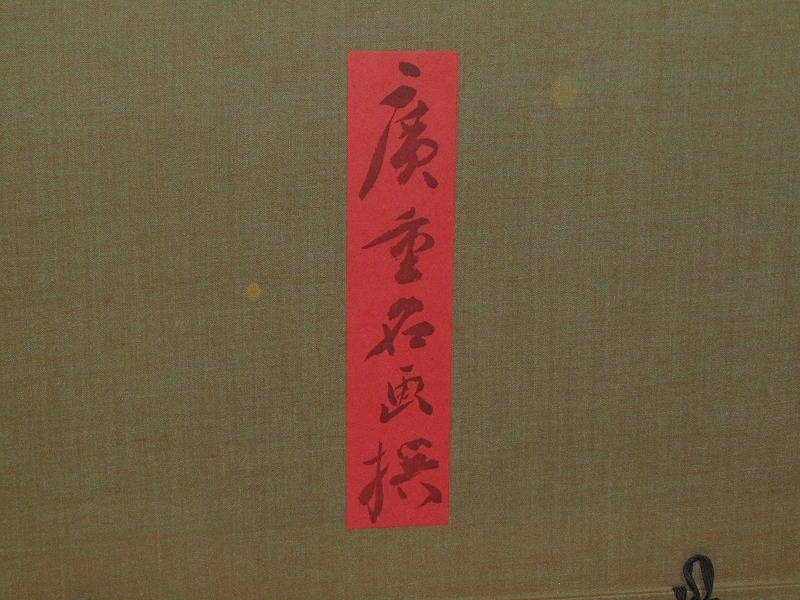 廣重名画撰